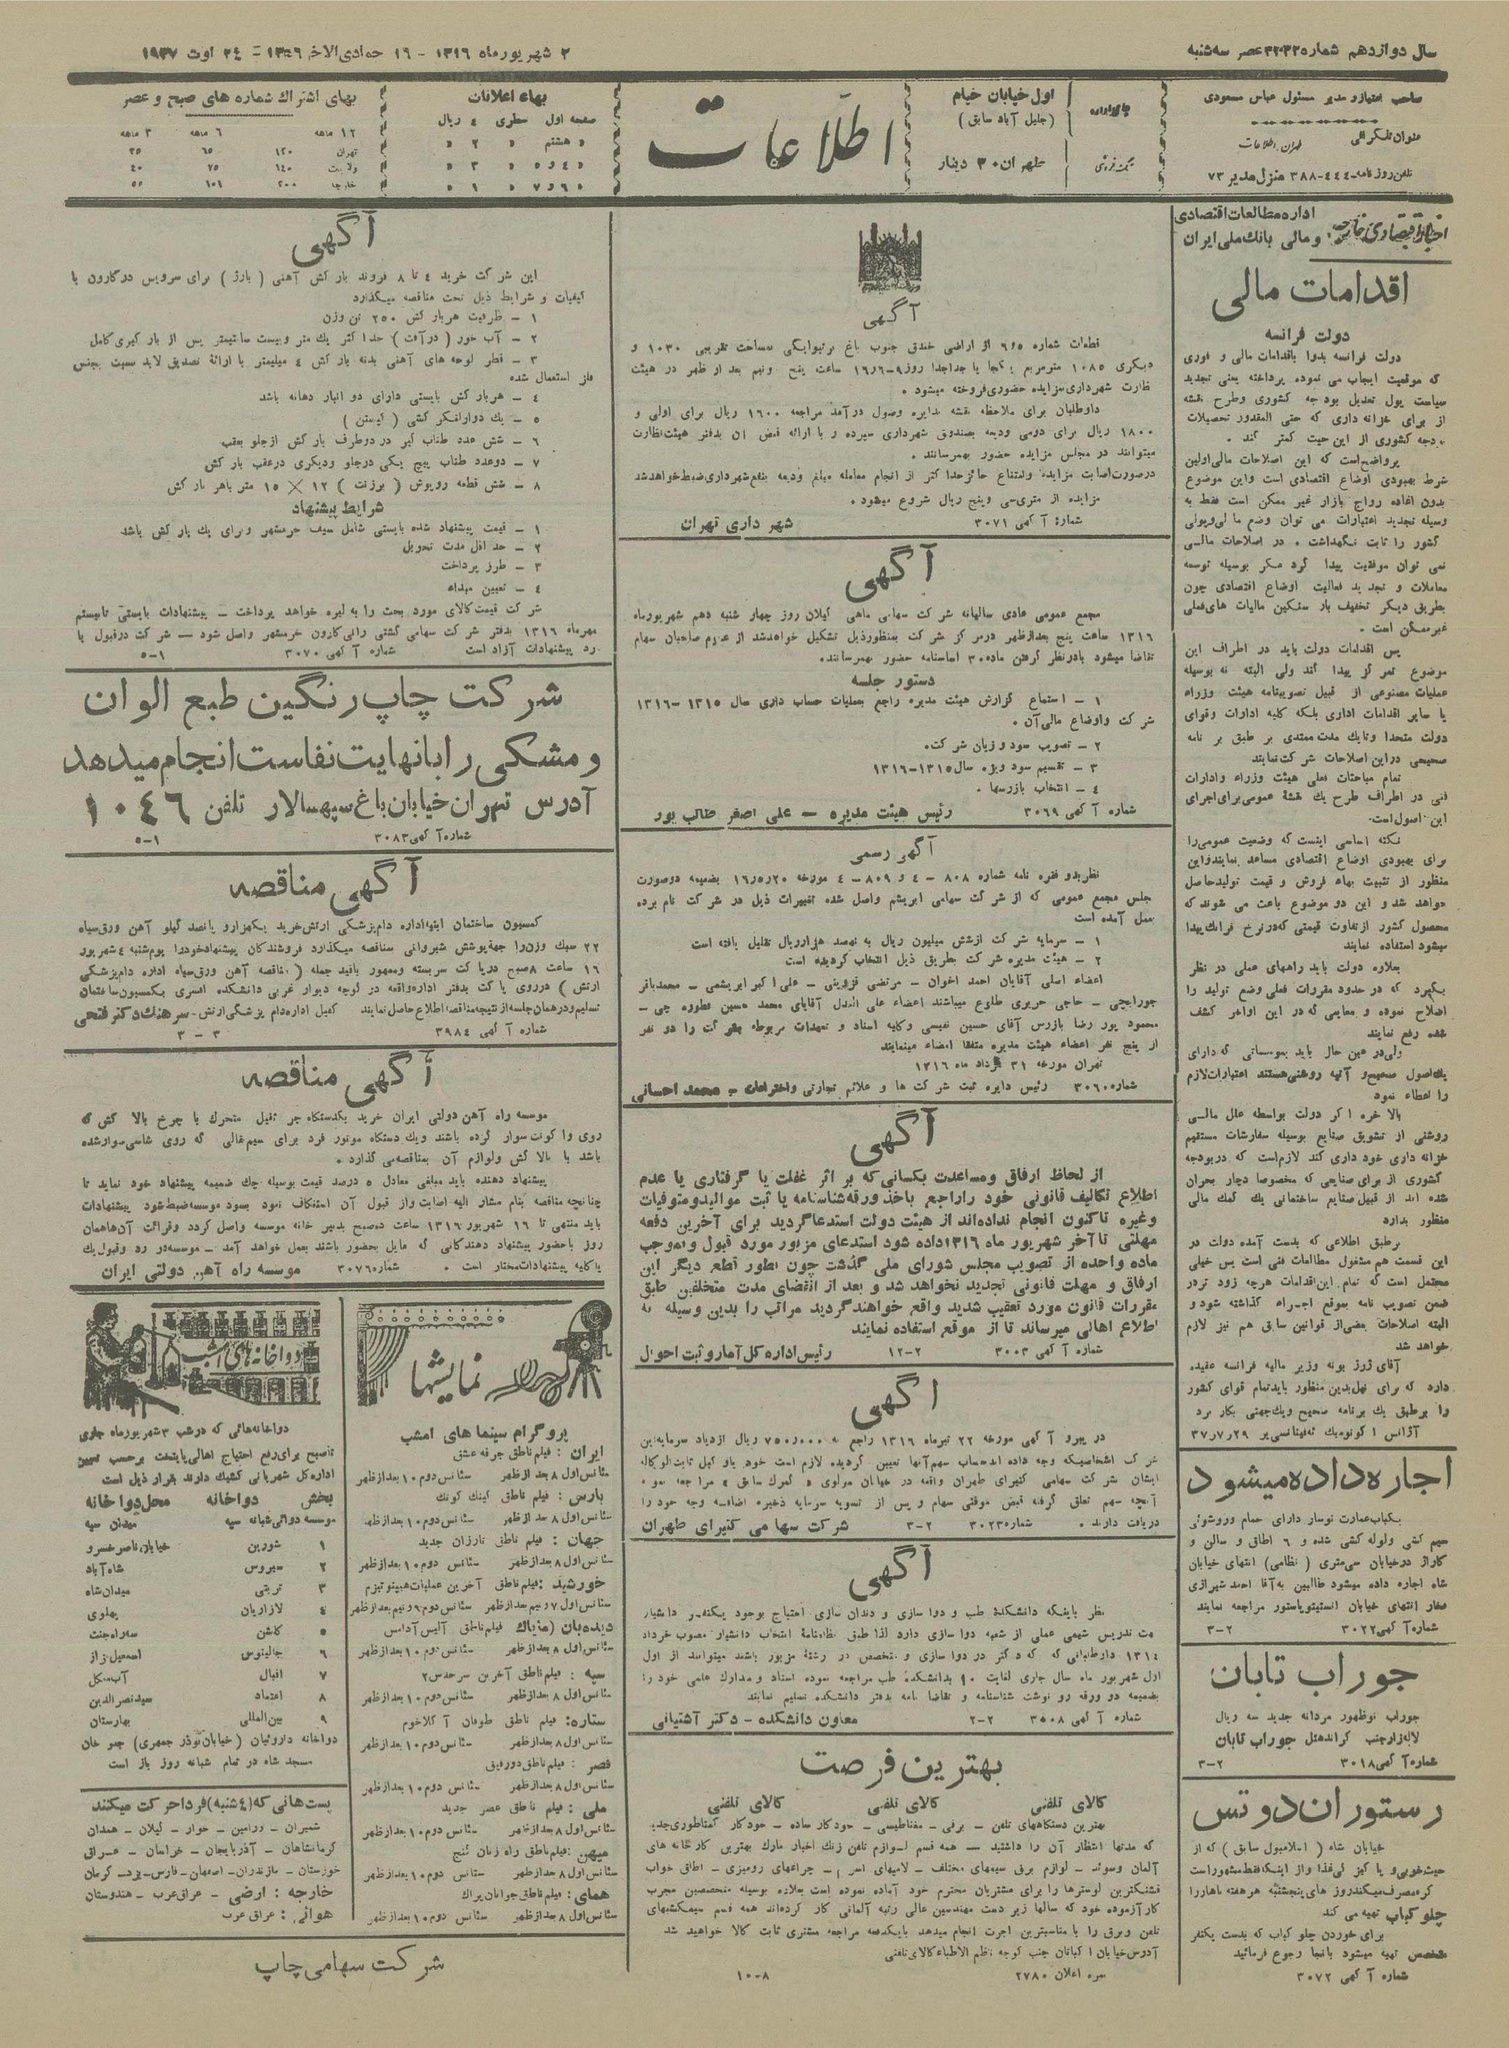 سال دوازدهم شماره ۳۲۰۳۲ عصر سه شنبه
۲ شهریور ماه ۱۳۱۶ - ۱۶ جمادی الاخر ۱۳۵۶ - ۲۴ اوت ۱۹۳۷
صاحب امتیاز و مدیر مسئول عباس مسعودی
عنوان تلگرافی طهران اطلاعات
تلفن روزنامه ۴۴۴-۳۸۸ منزل مدیر ۷۳
جای اداره
اول خیابان خیام
(جلیل آباد سابق)
تکفروشی
طهران ۳۰ دینار
اطلاعات
بهاء اعلانات
صفحه اول سطری ٤ ریال
« هشتم « ۲ «
« ٤ و ٥ « ۳ «
« ٦ و ۷ « ۱ «
بهای اشتراک شماره های صبح و عصر
۱۲ ماهه ٦ ماهه ۳ ماهه
تهران ۱۲۰ ٦٥ ۳٥
ولایت ۱٤۰ ۷٥ ٤۰
خارجه ۲۰۰ ۱۰۱ ٥٥
اخبار اقتصادی خارجه
اداره مطالعات اقتصادی
و مالی بانک ملی ایران
اقدامات مالی
دولت فرانسه
دولت فرانسه بدوا باقدامات مالی و فوری
که موقعیت ایجاب می نموده پرداخته یعنی تجدید
سیاست پول تعدیل بودجه کشوری وطرح نقشه
از برای خزانه داری که حتی المقدور تحصیلات
بودجه کشوری از این حیث کمتر کند .
پرواضح است که این اصلاحات مالی اولین
شرط بهبودی اوضاع اقتصادی است واین موضوع
بدون اعاده رواج بازار غیر ممکن است فقط به
وسیله تجدید اعتبارات می توان وضع مالی و پولی
کشور را ثابت نگهداشت . در اصلاحات مالی
نمی توان موفقیت پیدا کرد مگر بوسیله توسعه
معاملات و تجدید فعالیت اوضاع اقتصادی چون
بطریق دیگر تخفیف بار سنگین مالیات های فعلی
غیر ممکن است .
پس اقدامات دولت باید در اطراف این
موضوع تمرکز پیدا کند ولی البته نه بوسیله
عملیات مصنوعی از قبیل تصویبنامه هیئت وزراء
یا سایر اقدامات اداری بلکه کلیه ادارات وقوای
دولت متحدا وتایک مدت ممتدی بر طبق برنامه
صحیحی در این اصلاحات شرکت نمایند
تمام مباحثات فعلی هیئت وزراء وادارات
فنی در اطراف طرح یک نقشه عمومی برای اجرای
این اصول است.
نکته اساسی اینست که وضعیت عمومی را
برای بهبودی اوضاع اقتصادی مساعد نمایند واین
منظور از تثبیت بهاء فروش و قیمت تولید حاصل
خواهد شد و این دو موضوع باعث می شوند که
محصول کشور از تفاوت قیمتی که در نرخ فرانک پیدا
میشود استفاده نمایند
بعلاوه دولت باید راههای عملی در نظر
بگیرد که در حدود مقررات فعلی وضع تولید را
اصلاح نموده و معایبی که در این اواخر کشف
شده رفع نمایند
ولی در عین حال باید بموسساتی که دارای
یک اصول صحیح و آتیه روشنی هستند اعتبارات لازم
را اعطاء نمود
بالاخره اگر دولت بواسطه علل مالی
روشنی از تشویق صنایع بوسیله سفارشات مستقیم
خزانه داری خود داری کند لازم است که در بودجه
کشوری از برای صنایعی که مخصوصا دچار بحران
شده اند از قبیل صنایع ساختمانی یک کمک مالی
منظور بدارد
برطبق اطلاعی که بدست آمده دولت در
این قسمت هم مشغول مطالعات فنی است پس خیلی
محتمل است که تمام این اقدامات هرچه زود تر در
ضمن تصویب نامه بموقع اجراء گذاشته شود و
البته اصلاحات بعضی از قوانین سابق هم نیز لازم
خواهد شد
آقای ژرژ بونه وزیر مالیه فرانسه عقیده
دارد که برای نیل بدین منظور باید تمام قوای کشور
را برطبق یک برنامه صحیح و یک جهتی بکار برد
آژانس اکونومیک ئه فینانسی یر ۲۹ر۷ر۳۷
اجاره داده میشود
یکباب عمارت نوساز دارای حمام وروشوئی
سیم کشی ولوله کشی شده و ٦ اطاق و سالن و
کاراژ در خیابان سی متری (نظامی) انتهای خیابان
شاه اجاره داده میشود طالبین به آقا احمد شیرازی
انتهای خیابان انستیتو پاستور مراجعه نمایند
شماره آ گهی ۳۰۲۲ ۲-۳
جوراب تابان
جوراب نوظهور مردانه جدید سه ریال
لاله زار جنب گراندهتل جوراب تابان
شماره آ گهی ۳۰۱۸ ۲-۳
رستوران دوتس
خیابان شاه ( اسلامبول سابق ) که از
حیث خوبی و پاکیزگی غذا و از اینکه فقط مشهور است
کره مصرف میکند روز های پنجشنبه هر هفته ناهار را
چلو کباب تهیه می کند
برای خوردن چلو کباب که بدست یکنفر
متخصص تهیه میشود بانجا رجوع فرمائید
شماره آ گهی ۳۰۷۲
آگهی
قطعات شماره ٥و٦ از اراضی خندق جنوب باغ مساحت تقریبی ۱۰۳۰ و
دیگری ۱۰۸٥ مترمربع یکجا یا جداجدا روز ۹-٦ر۱٦ ساعت پنج ونیم بعد از ظهر در هیئت
نظارت شهرداری مزایده حضوری فروخته میشود .
داوطلبان برای ملاحظه نقشه بدایره وصول درآمد مراجعه ۱٦۰۰ ریال برای اولی و
۱۸۰۰ ریال برای دومی ودیعه بصندوق شهرداری سپرده و با ارائه قبض آن بدفتر هیئت نظارت
میتوانند در مجلس مزایده حضور بهمرسانند .
در صورت اصابت مزایده وامتناع حائز حداکثر از انجام معامله مبلغ ودیعه بنفع شهرداری ضبط خواهد شد
مزایده از متری سی وپنج ریال شروع میشود .
شماره آ گهی ۳۰۷۱ شهرداری تهران
آگهی
مجمع عمومی عادی سالیانه شرکت سهامی ماهی گیلان روز چهار شنبه دهم شهریورماه
۱۳۱٦ ساعت پنج بعدازظهر در مرکز شرکت بمنظور ذیل تشکیل خواهد شد از عموم صاحبان سهام
تقاضا میشود با در نظر گرفتن ماده ۳۰ اساسنامه حضور بهمرسانند.
دستور جلسه
۱ - استماع گزارش هیئت مدیره راجع بعملیات حساب داری سال ۱۳۱٥-۱۳۱٦
شرکت واوضاع مالی آن .
۲ - تصویب سود و زیان شرکت.
۳ - تقسیم سود ویژه سال ۱۳۱٥-۱۳۱٦
٤ - انتخاب بازرسها .
شماره آ گهی ۳۰٦۹ رئیس هیئت مدیره - علی اصغر طالب پور
آگهی رسمی
نظر بدو فقره نامه شماره ۸۰۸ - ٤ و ۸۰۹ - ٤ مورخه ۲۰ر٥ر۱٦ بضمیمه دوصورت
جلس مجمع عمومی که از شرکت سهامی ابریشم واصل شده تغییرات ذیل در شرکت نام برده
بعمل آمده است
۱ - سرمایه شرکت از شش میلیون ریال به نهصد هزار ریال تقلیل یافته است
۲ - هیئت مدیره شرکت بطریق ذیل انتخاب گردیده است
اعضاء اصلی آقایان احمد اخوان - مرتضی قزوینی - علی اکبر ابریشمی - محمدباقر
جورابچی - حاجی حریری طلوع میباشند اعضاء علی البدل آقایان محمد حسین چی -
محمود پور رضا بازرس آقای حسین نفیسی وکلیه اسناد و تعهدات مربوطه بشرکت را دو نفر
از پنج نفر اعضاء هیئت مدیره متفقا امضاء مینمایند
تهران مورخه ۳۱ مرداد ماه ۱۳۱٦
شماره ۳۰٦۰ رئیس دایره ثبت شرکت ها و علائم تجارتی واختراعات - محمد احسانی
آگهی
از لحاظ ارفاق و مساعدت بکسانی که بر اثر غفلت یا گرفتاری یا عدم
اطلاع تکالیف قانونی خود را راجع باخذ ورقه شناسنامه یا ثبت موالید و متوفیات
وغیره تاکنون انجام نداده اند از هیئت دولت استدعا گردید برای آخرین دفعه
مهلتی تا آخر شهریور ماه ۱۳۱٦ داده شود استدعای مزبور مورد قبول و بموجب
ماده واحده از تصویب مجلس شورای ملی گذشت چون بطور قطع دیگر این
ارفاق و مهلت قانونی تجدید نخواهد شد و بعد از انقضای مدت متخلفین طبق
مقررات قانون مورد تعقیب شدید واقع خواهند گردید مراتب را بدین وسیله به
اطلاع اهالی میرساند تا از موقع استفاده نمایند
شماره آ گهی ۳۰۰۳ ۲-۱۲ رئیس اداره کل آمار و ثبت احوال
آگهی
در پیرو آ گهی مورخه ۲۲ تیرماه ۱۳۱٦ راجع به ۷٥۰ر۰۰۰ ریال ازدیاد سرمایه این
شرکت اشخاصیکه وجه داده اند حساب سهم آنها تعیین گردیده لازم است خود یا وکیل ثابت الوکاله
ایشان شرکت سهامی کتیرای طهران واقعه در خیابان مولوی « گمرک سابق » مراجعه نموده
آنچه سهم تعلق گرفته قبض موقتی سهام و پس از تسویه سرمایه ذخیره اضافه وجه خود را
دریافت دارند . شماره ۳۰۲۳ ۲-۳ شرکت سهامی کتیرای طهران
آگهی
نظر باینکه دانشکده طب و دوا سازی و دندان سازی احتیاج بوجود یکنفر دانشیار
جهت تدریس شیمی عملی از شعبه دوا سازی دارد لذا طبق نظامنامه انتخاب دانشیار مصوب خرداد
۱۳۱٤ داوطلبانی که که دکتر در دوا سازی و متخصص در رشتهٔ مزبور باشند میتوانند از اول
اول شهریور ماه سال جاری لغایت ۲۰ بدانشکده طب مراجعه نموده اسناد و مدارک علمی خود را
بضمیمه دو ورقه رو نوشت شناسنامه و تقاضا نامه بدفتر دانشکده تسلیم نمایند
شماره آ گهی ۳۰۰۸ ۲-۲ معاون دانشکده - دکتر آشتیانی
بهترین فرصت
کالای تلفنی کالای تلفنی کالای تلفنی
بهترین دستگاههای تلفن - برقی - مغناطیسی - خودکار ساده - خودکار کمتاطوری جدید
که مدتها انتظار آن را داشتید - همه قسم لوازم تلفن زنگ اخبار مارک بهترین کارخانه های
آلمان وسوئد - لوازم برق سیمهای مختلف - لامپهای اسرام - چراغهای رومیزی - اطاق خواب
قشنگترین لوسترها را برای مشتریان محترم خود آماده نموده است بعلاوه بوسیله متخصصین مجرب
کارآزموده خود که سالها زیر دست مهندسین عالی رتبه آلمانی کار کرده اند همه قسم سیمکشیهای
تلفن وبرق را با مناسبترین اجرت انجام میدهد با یکدفعه مراجعه مشتری ثابت کالا خواهید شد
آدرس خیابان اکباتان جنب کوچه ناظم الاطباء کالای تلفنی
نمره اعلان ۲۷۸۰ ۸-۱۰
آگهی
این شرکت خرید ٤ تا ۸ فروند بارکش آهنی ( بارژ ) برای سرویس دو کارون با
کیفیات و شرایط ذیل تحت مناقصه میگذارد
۱ - ظرفیت هر بارکش ۲٥۰ تن وزن
۲ - آب خور ( درآفت ) حداکثر یک متر وبیست سانتیمتر پس از بار گیری کامل
۳ - قطر لوحه های آهنی بدنه بارکش ٤ میلیمتر با ارائه تصدیق لاید نسبت بجنس
فلز استعمال شده
٤ - هر بارکش بایستی دارای دو انبار دهانه باشد
٥ - یک دوار لنگر کشی ( کپستن )
٦ - شش عدد طناب گیر در دو طرف بارکش از جلو بعقب
۷ - دو عدد طناب پیچ یکی در جلو ودیگری در عقب بارکش
۸ - شش قطعه روپوش ( برزنت ) ۱۲ × ۱٥ متر بهر بارکش
شرایط پیشنهاد
۱ - قیمت پیشنهاد شده بایستی شامل سیف خرمشهر وبرای یک بارکش باشد
۲ - حداقل مدت تحویل
۳ - طرز پرداخت
٤ - تعیین مبداء
شرکت قیمت کالای مورد بحث را به لیره خواهد پرداخت - پیشنهادات بایستی تا بیستم
مهرماه ۱۳۱٦ بدفتر شرکت سهامی کشتی رانی کارون خرمشهر واصل شود - شرکت در قبول یا
رد پیشنهادات آزاد است شماره آ گهی ۳۰۷۰ ۱-٥
شرکت چاپ رنگین طبع الوان
و مشکی را با نهایت نفاست انجام میدهد
آدرس تهران خیابان باغ سپهسالار تلفن ۱۰٤٦
شماره آ گهی ۳۰۸۳ ۱-٥
آگهی مناقصه
کمسیون ساختمان ابنیه اداره دامپزشکی ارتش خرید یکهزار و پانصد کیلو آهن ورق سیاه
۲۲ سبک وزن را جهة پوشش شیروانی مناقصه میگذارد فروشندگان پیشنهاد خود را یوم شنبه ٤ شهریور
۱٦ ساعت ۸ صبح در پاکت سربسته وممهور باقید جمله ( مناقصه آهن ورق سیاه اداره دامپزشکی
ارتش ) در روی پاکت بدفتر اداره واقعه در کوچه دیوار غربی دانشکده افسری بکمسیون ساختمان
تسلیم و در همان جلسه از نتیجه مناقصه اطلاع حاصل نمایند کفیل اداره دامپزشکی ارتش - سرهنگ دکتر فتحی
شماره آ گهی ۲۹۸٤ ۳ - ۳
آگهی مناقصه
موسسه راه آهن دولتی ایران خرید یکدستگاه جر ثقیل متحرک با چرخ بالا کش که
روی واگونت سوار کرده باشند ویک دستگاه موتور فرد برای سیم نقاله که روی شاسی سوار شده
باشد با بالا کش ولوازم آن بمناقصه می گذارد .
پیشنهاد دهنده باید مبلغی معادل ٥ درصد قیمت بوسیله چک ضمیمه پیشنهاد خود نماید تا
چنانچه مناقصه بنام مشار الیه اصابت و از قبول آن استنکاف نمود بسود موسسه ضبط شود پیشنهادات
باید منتهی تا ۱٦ شهریور ۱۳۱٦ ساعت ده صبح بدبیر خانه موسسه واصل گردد وقرائت آن همان
روز باحضور پیشنهاد دهندگانی که مایل بحضور باشند بعمل خواهد آمد - موسسه در رد وقبول یک
یا کلیه پیشنهادات مختار است . شماره ۳۰۷٦ موسسه راه آهن دولتی ایران
نمایشها
پروگرام سینما های امشب
ایران : فیلم ناطق جرقه عشق
سئانس اول ۸ بعد از ظهر سئانس دوم ۱۰ بعدازظهر
پارس : فیلم ناطق کینک کونک
سئانس اول ۸ بعدازظهر سئانس دوم ۱۰ بعدازظهر
جهان : فیلم ناطق تارزان جدید
سئانس اول ۸ بعدازظهر سئانس دوم ۱۰ بعدازظهر
خورشید : فیلم ناطق آخرین عملیات هیپنوتیزم
سئانس اول ۷ ونیم بعدازظهر سئانس دوم ۹ ونیم بعدازظهر
دیده بان (منیاک) فیلم ناطق آلیس آدامس
سئانس اول ۸ بعدازظهر سئانس دوم ۱۰ بعدازظهر
سپه : فیلم ناطق آخرین سرحد س۲
سئانس اول ۸ بعدازظهر سئانس دوم ۱۰ بعدازظهر
ستاره: فیلم ناطق طوفان آ کلاخوم
سئانس اول ۸ بعدازظهر سئانس دوم ۱۰ بعدازظهر
قصر : فیلم ناطق دو رفیق
سئانس اول ۸ بعدازظهر سئانس دوم ۱۰ بعدازظهر
ملی : فیلم ناطق عصر جدید
سئانس اول ۸ بعدازظهر سئانس دوم ۱۰ بعدازظهر
میهن : فیلم ناطق راه زنان گنج
سئانس اول ۸ بعدازظهر سئانس دوم ۱۰ بعدازظهر
همای : فیلم ناطق جوانان پراک
سئانس اول ۸ بعدازظهر سئانس دوم ۱۰ بعدازظهر
دواخانه های امشب
دواخانه هائی که در شب ۳ شهریور ماه جاری
تا صبح برای رفع احتیاج اهالی پایتخت برحسب تعیین
اداره کل شهربانی کشیک دارند بقرار ذیل است
بخش دواخانه محل دواخانه
موسسه دوائی شبانه سپه میدان سپه
۱ شورین خیابان ناصر خسرو
۲ سیروس شاه آباد
۳ تربتی میدان شاه
٤ لازاریان پهلوی
٥ کاشن سه راه جنت
٦ جالینوس اسمعیل بزاز
۷ اقبال آب منگل
۸ اعتماد سید نصرالدین
۹ بین المللی بهارستان
دواخانه داروئیان (خیابان بوذر جمهری) جلو خان
مسجد شاه در تمام شبانه روز باز است
پست هائی که (٤ شنبه) فردا حرکت میکنند
شمیران - ورامین - خوار - گیلان - همدان
کرمانشاهان - آذربایجان - خراسان - عراق
خوزستان - مازندران - اصفهان - فارس - یزد - کرمان
خارجه : ارضی - عراق عرب - هندوستان
هوائی : عراق عرب
شرکت سهامی چاپ